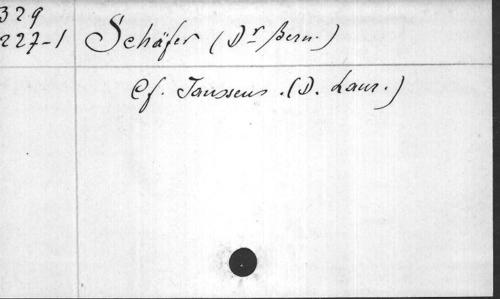 329
227-1 Schäfer (Dr Bern.)
Cf. Janssens. (D. Laur.)